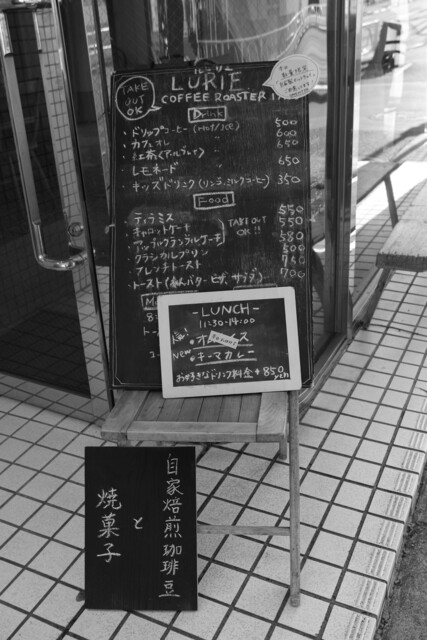 TAKE
OUT
OK
LURIE
COFFEE ROASTER
Drink
・ドリップコーヒー(HOT/ICE) 500
・カフェオレ 〃 600
・紅茶(アールグレイ) 〃 650
・レモネード 〃 650
・キッズドリンク(リンゴ、ミルクコーヒー) 350
Food
・ティラミス 550
・キャロットケーキ 550
・アップルクランブルケーキ 580
TAKE OUT
OK!!
・クラシカルプリン 500
・フレンチトースト
・トースト(あんバター、ピザ、サラダ) 700
-LUNCH-
11:30-14:00
New
・キーマカレー
お好きなドリンク料金+850yen
自家焙煎珈琲豆
と
焼菓子